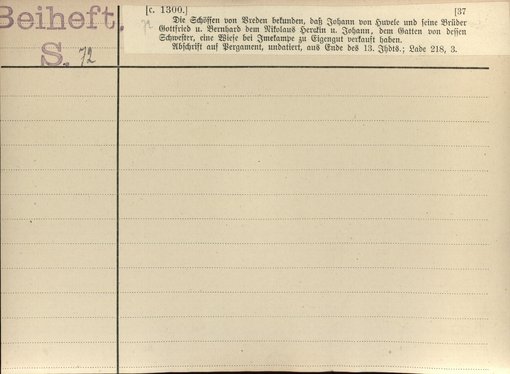 Beiheft.
S. 72
[c. 1300.] [37
Die Schöffen von Vreden bekunden, daß Johann von Huvele und seine Brüder
Gottfried u. Bernhard dem Nikolaus Herckin u. Johann, dem Gatten von dessen
Schwester, eine Wiese bei Imekampe zu Eigengut verkauft haben.
Abschrift auf Pergament, undatiert, aus Ende des 13. Jhdts.; Lade 218, 3.